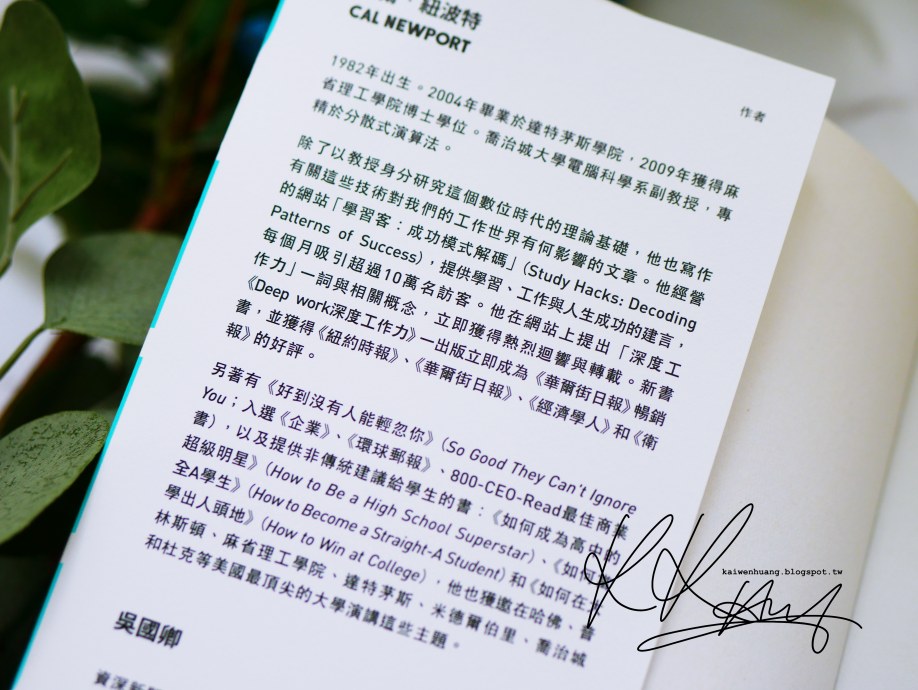 紐波特
CAL NEWPORT
作者
1982年出生。2004年畢業於達特茅斯學院，2009年獲得麻
省理工學院博士學位。喬治城大學電腦科學系副教授，專
精於分散式演算法。
除了以教授身分研究這個數位時代的理論基礎，他也寫作
有關這些技術對我們的工作世界有何影響的文章。他經營
的網站「學習客：成功模式解碼」(Study Hacks: Decoding
Patterns of Success)，提供學習、工作與人生成功的建言，
每個月吸引超過10萬名訪客。他在網站上提出「深度工
作力」一詞與相關概念，立即獲得熱烈迴響與轉載。新書
《Deep work深度工作力》一出版立即成為《華爾街日報》暢銷
書，並獲得《紐約時報》、《華爾街日報》、《經濟學人》和《衛
報》的好評。
另著有《好到沒有人能輕忽你》(So Good They Can't Ignore
You；入選《企業》、《環球郵報》、800-CEO-Read最佳商業
書)，以及提供非傳統建議給學生的書：《如何成為高中的
超級明星》(How to Be a High School Superstar)、《如何
全A學生》(How to Become a Straight-A Student)和《如何在大
學出人頭地》(How to Win at College)，他也獲邀在哈佛、普
林斯頓、麻省理工學院、達特茅斯、米德爾伯里、喬治城
和杜克等美國最頂尖的大學演講這些主題。
吳國卿
資深新
kaiwenhuang.blogspot.tw